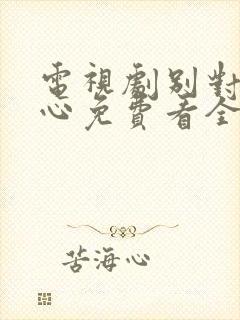 電視劇別對
心免費看全
苦海心